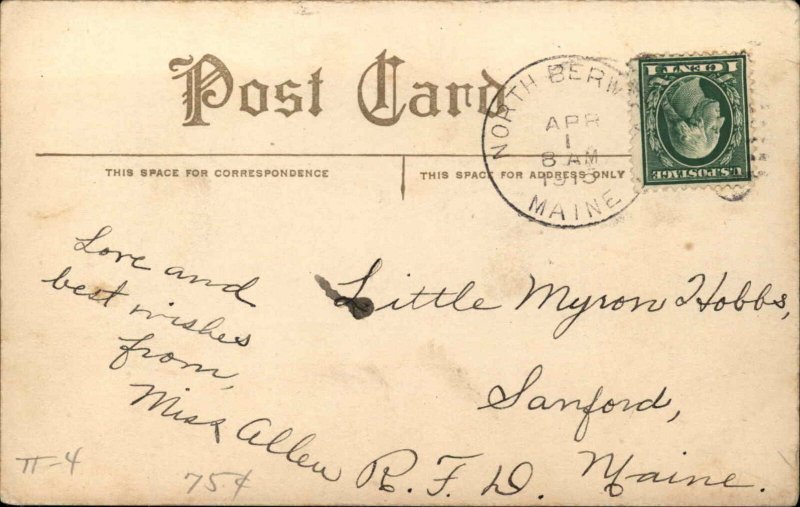 Post Card
THIS SPACE FOR CORRESPONDENCE
THIS SPACE FOR ADDRESS ONLY
NORTH BERW
APR
1
8 AM
MAINE
1 CENT 1
U.S. POSTAGE
Love and
best wishes
from,
Miss Allen
Little Myron Hobbs,
Sanford,
R.F.D. Maine.
π-4
75¢